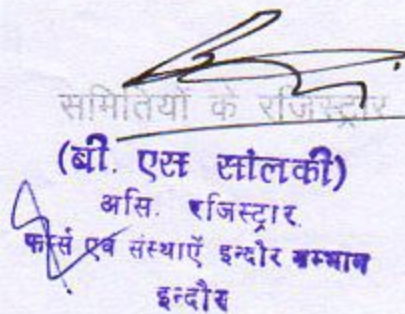 समितियों के रजिस्ट्रार
(बी. एस सोलंकी)
असि. रजिस्ट्रार
फर्म्स एवं संस्थाएँ इन्दौर सम्भाग
इन्दौर